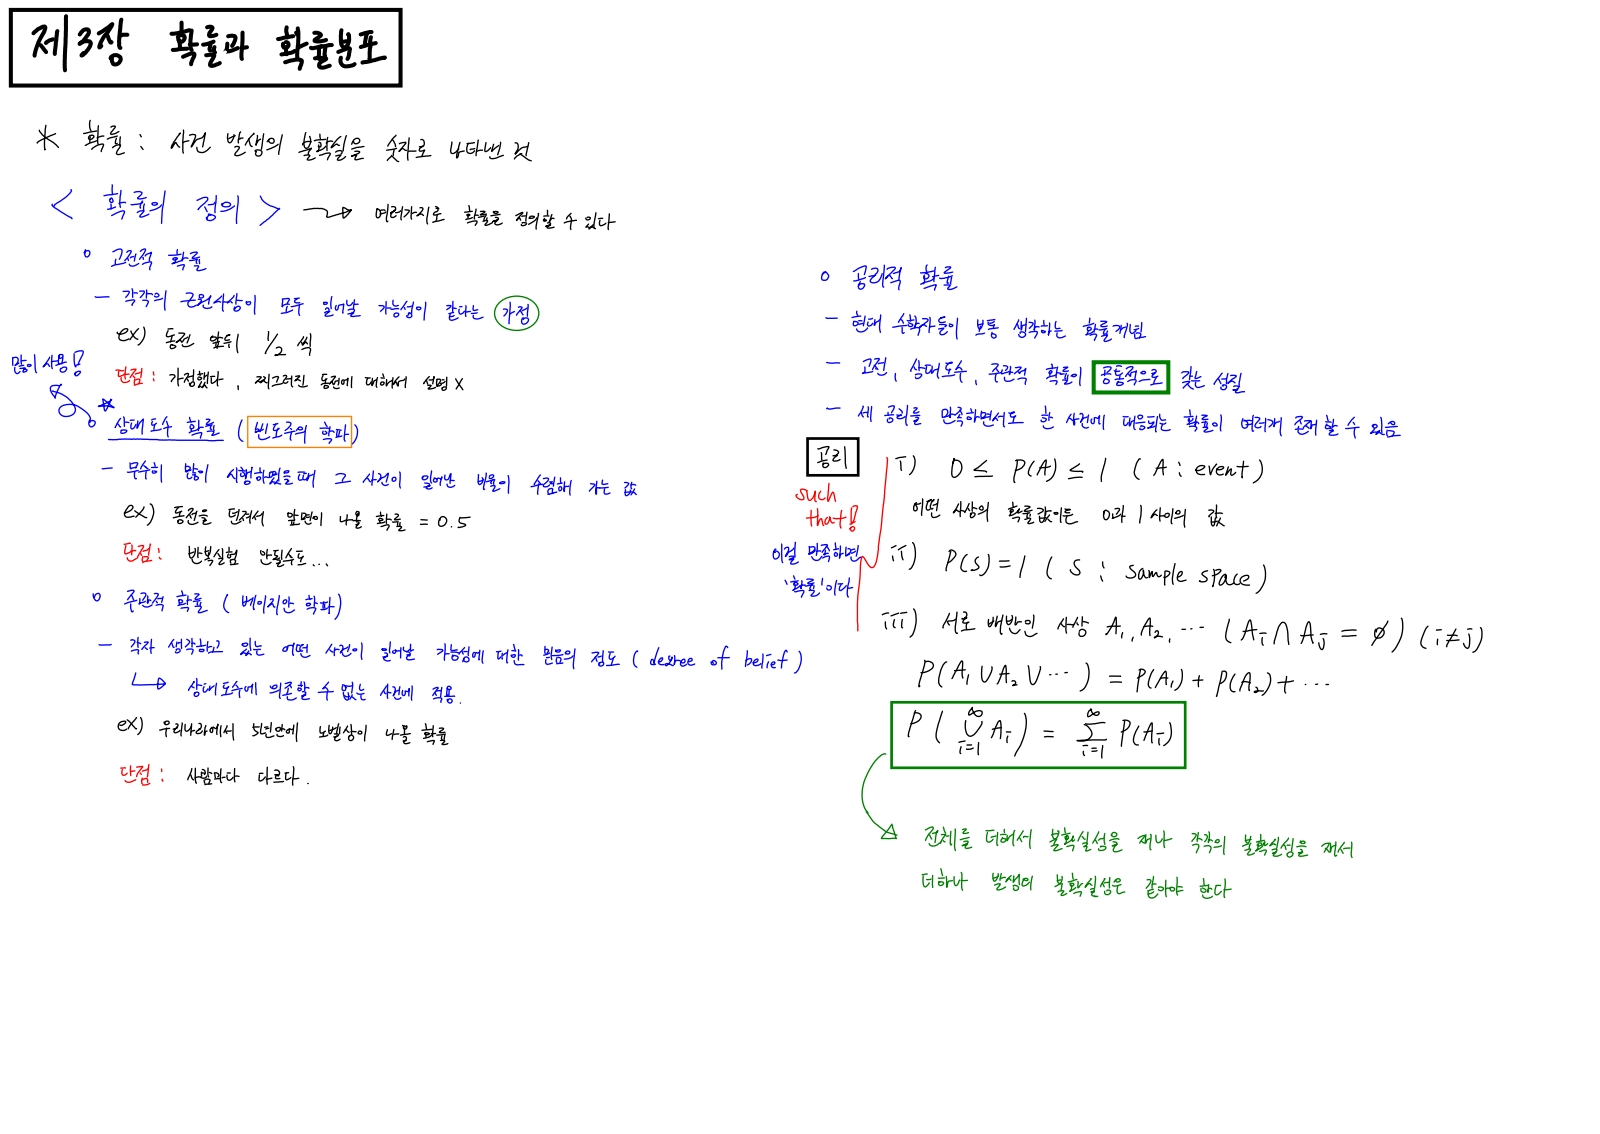 제3장 확률과 확률분포
* 확률 : 사건 발생의 불확실을 숫자로 나타낸 것
< 확률의 정의 > → 여러가지로 확률을 정의할 수 있다
○ 고전적 확률
- 각각의 근원사상이 모두 일어날 가능성이 같다는 가정
ex) 동전 앞뒤 1/2 씩
단점 : 가정했다, 찌그러진 동전에 대해서 설명 X
많이 사용!
★
○ 상대도수 확률 (빈도주의 학파)
- 무수히 많이 시행하였을때 그 사건이 일어난 비율이 수렴해 가는 값
ex) 동전을 던져서 앞면이 나올 확률 = 0.5
단점 : 반복실험 안될수도...
○ 주관적 확률 (베이지안 학파)
- 각자 생각하고 있는 어떤 사건이 일어날 가능성에 대한 믿음의 정도 (degree of belief)
↳ 상대도수에 의존할 수 없는 사건에 적용.
ex) 우리나라에서 5년안에 노벨상이 나올 확률
단점 : 사람마다 다르다.
○ 공리적 확률
- 현대 수학자들이 보통 생각하는 확률개념
- 고전, 상대도수, 주관적 확률이 공통적으로 갖는 성질
- 세 공리를 만족하면서도 한 사건에 대응되는 확률이 여러개 존재할 수 있음
공리
such
that!
이걸 만족하면
'확률'이다
i) 0 ≤ P(A) ≤ 1 (A : event)
어떤 사상의 확률값이든 0과 1 사이의 값
ii) P(S) = 1 (S : sample space)
iii) 서로 배반인 사상 A₁, A₂, ⋯ (Aᵢ ∩ Aⱼ = ∅) (i≠j)
P(A₁ ∪ A₂ ∪ ⋯) = P(A₁) + P(A₂) + ⋯
P(∪_{i=1}^{∞} Aᵢ) = Σ_{i=1}^{∞} P(Aᵢ)
전체를 더해서 불확실성을 재나 각각의 불확실성을 재서
더하나 발생의 불확실성은 같아야 한다